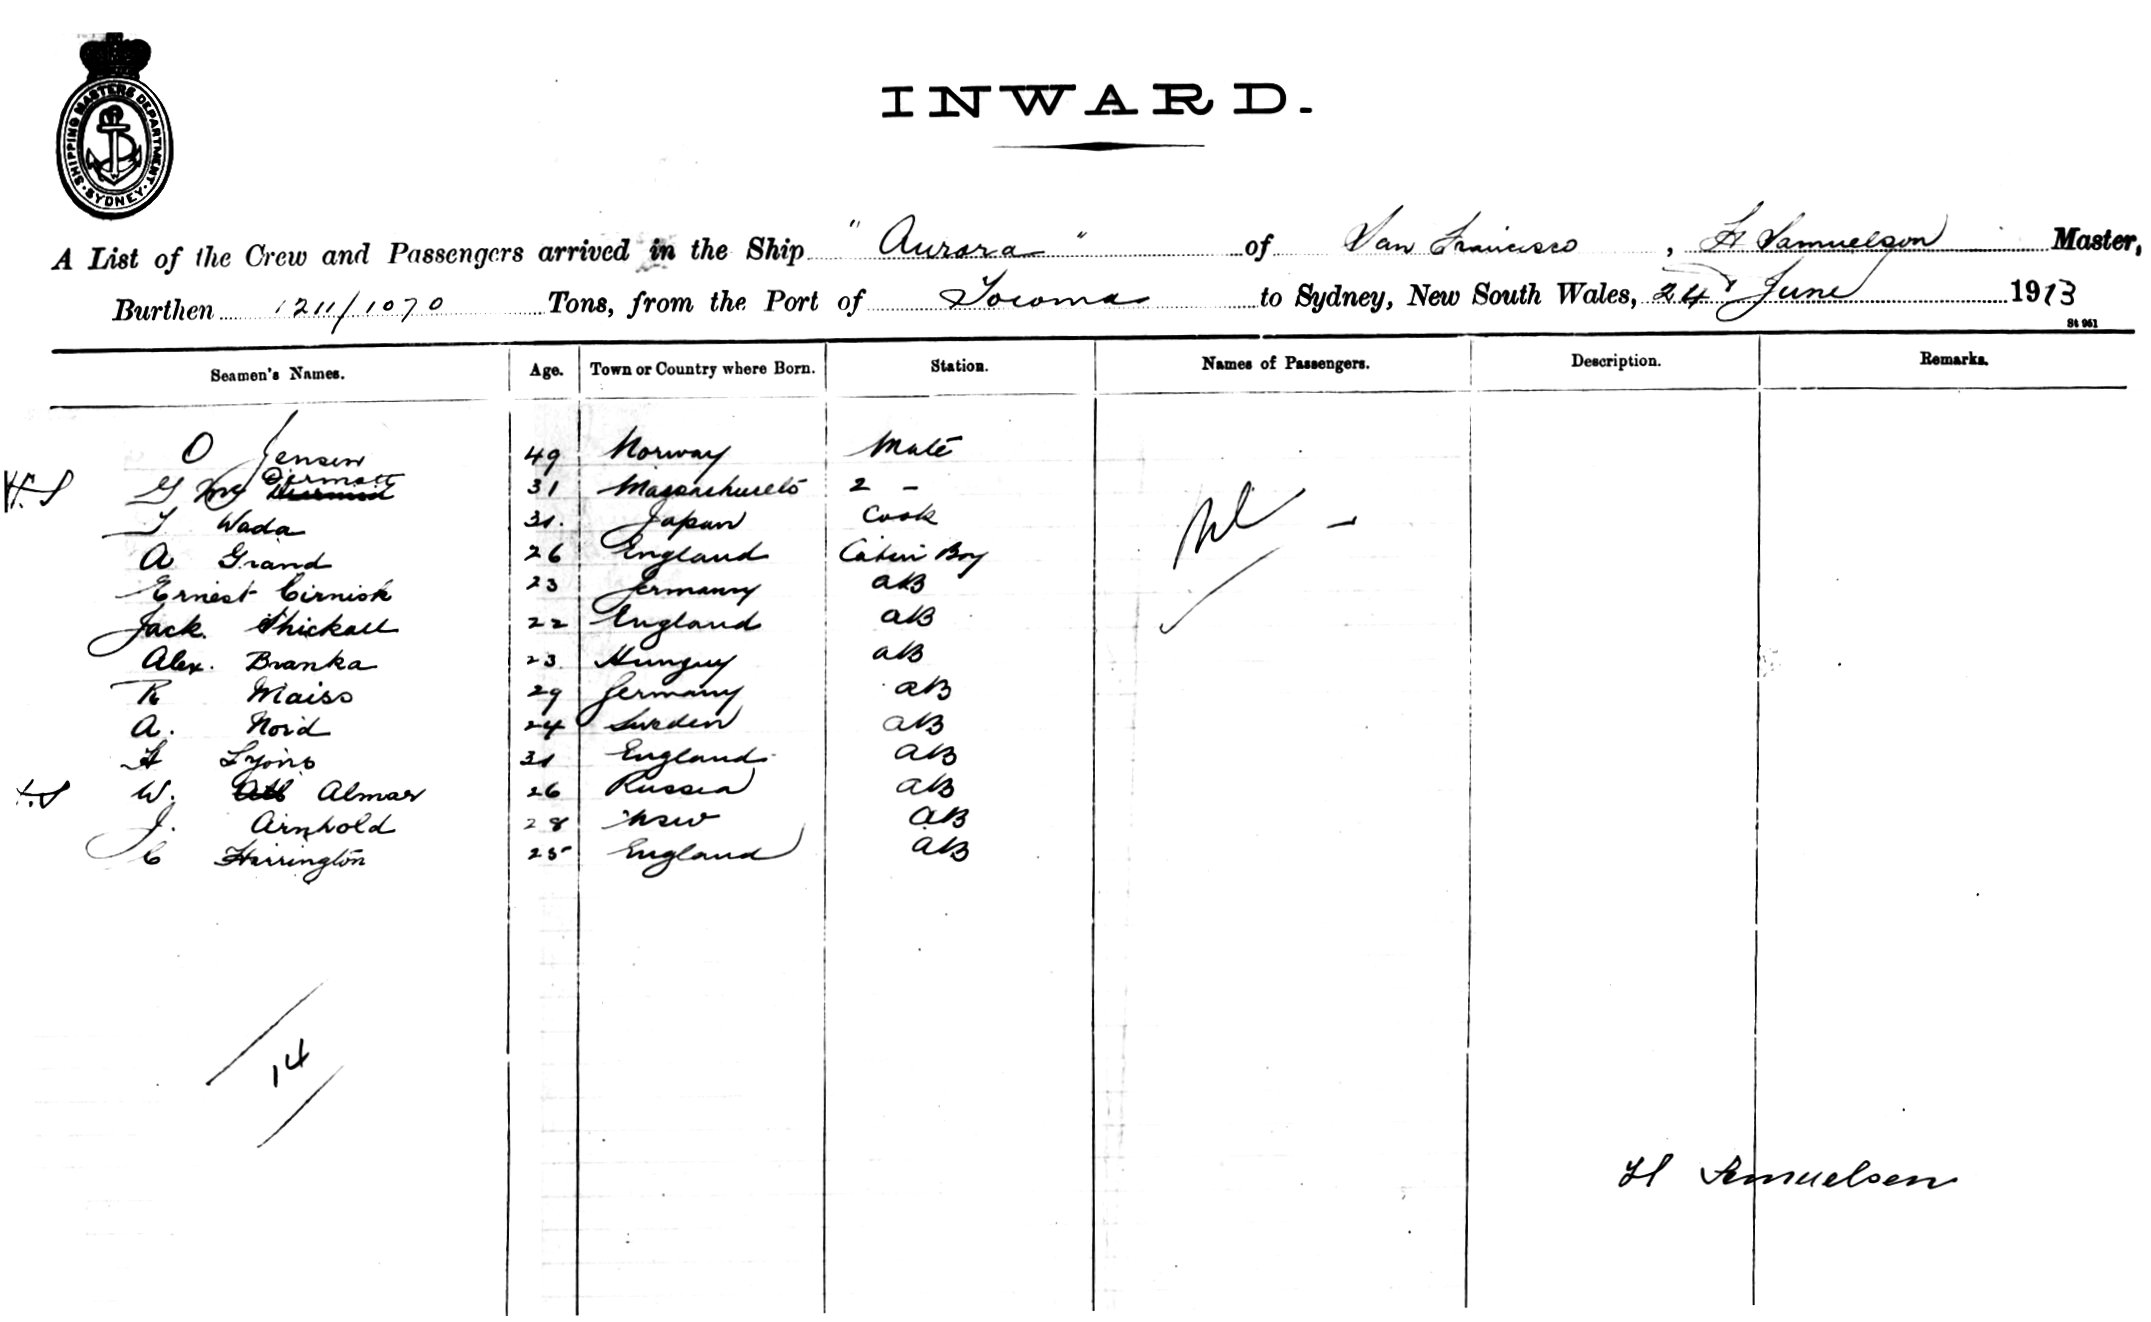 SHIPPING MASTERS DEPARTMENT · SYDNEY ·
INWARD.
A List of the Crew and Passengers arrived in the Ship "Aurora" of San Francisco, H Samuelson Master,
Burthen 1211/1070 Tons, from the Port of Tocoma to Sydney, New South Wales, 24 June 1913
St 961
Seamen's Names. Age. Town or Country where Born. Station. Names of Passengers. Description. Remarks.
O Jensen 49 Norway Mate
H.S G Mc Dermott 31 Massachusetts 2 -
T Wada 31. Japan Cook
A Grand 26 England Cabin Boy
Ernest Cirnick 23 Germany AB
Jack. Shickall 22 England AB
Alex. Branka 23 Hungry AB
R Maiss 29 Germany AB
A. Nord 24 Sweden AB
H Lyons 31 England AB
H.S W. Almar 26 Russia AB
J. Arnhold 28 NSW AB
C Harrington 25 England AB
Nil -
14
H Samuelsen